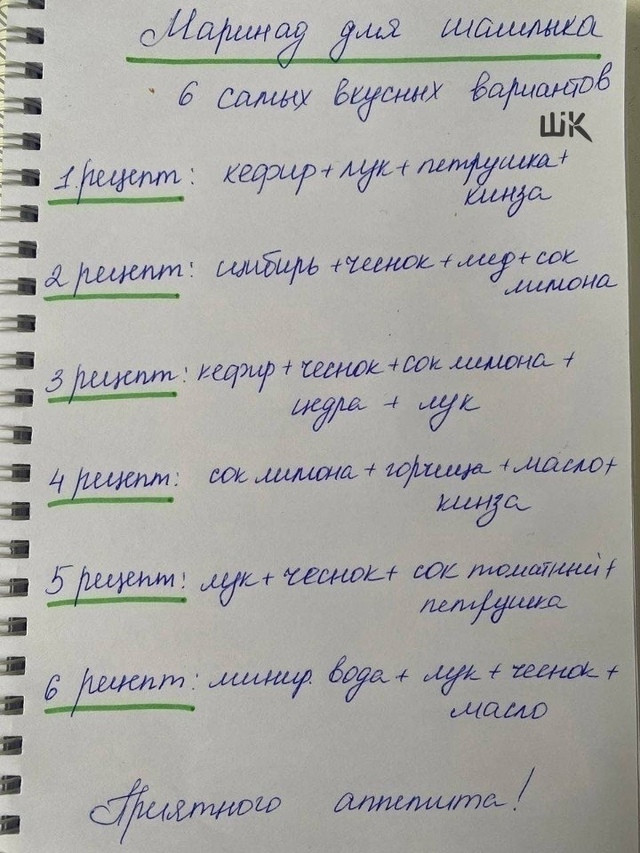 Маринад для шашлыка
6 самых вкусных вариантов
ШК
1 рецепт: кефир + лук + петрушка +
кинза
2 рецепт: имбирь + чеснок + мед + сок
лимона
3 рецепт: кефир + чеснок + сок лимона +
цедра + лук
4 рецепт: сок лимона + горчица + масло +
кинза
5 рецепт: лук + чеснок + сок томатный +
петрушка
6 рецепт: минер. вода + лук + чеснок +
масло
Приятного аппетита!